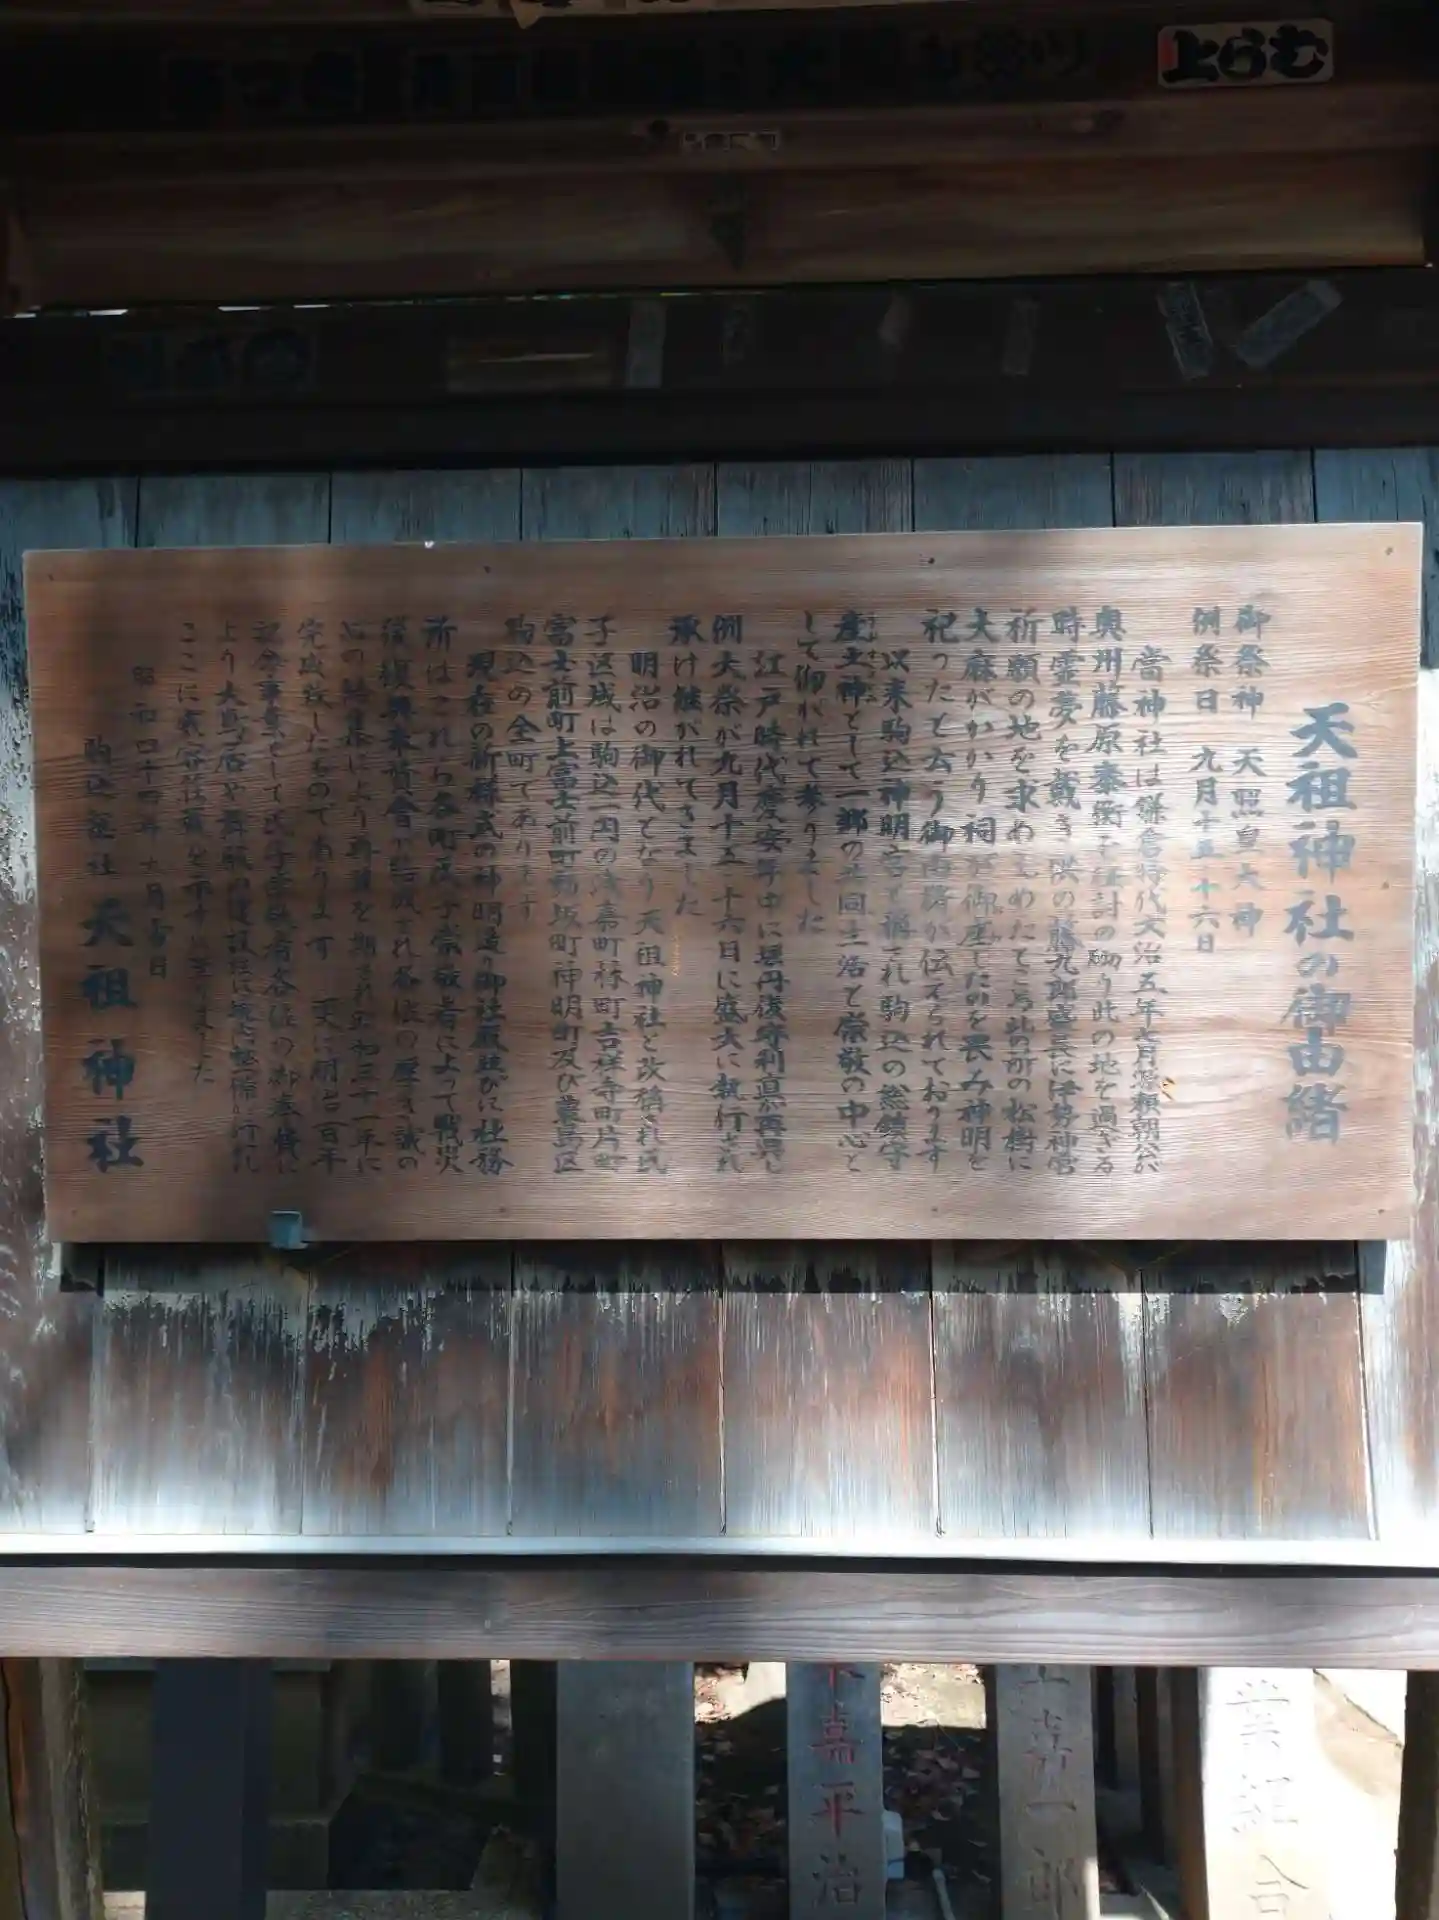 上らむ
天祖神社の御由緒
御祭神 天照皇大神
例祭日 九月十五 十六日
當神社は鎌倉時代文治五年七月源頼朝公が
奥州藤原泰衡を征討の砌り此の地を過ぎる
時霊夢を戴き供の藤九郎盛長に伊勢神宮
祈願の地を求めしめたところ此の所の松樹に
大麻がかかり祠が御座したのを畏み神明を
祀ったと云う御由緒が伝えられております
以来駒込神明宮と稱され駒込の総鎮守
産土神として一郷の共同生活と崇敬の中心と
して仰がれて参りました
江戸時代慶安年中に堀丹後守利直が再興し
例大祭が九月十五 十六日に盛大に執行され
承け継がれてきました
明治の御代となり天祖神社と改稱され氏
子区域は駒込一円の浅嘉町林町吉祥寺町片町
富士前町上富士前町動坂町神明町及び豊島区
駒込の全町であります
現在の新様式の神明造り御社殿並びに社務
所はこれら各町氏子崇敬者によって戦災
後復興奉賛会が結成され各位の厚き誠の
完成致したものであります 更に明治百年
記念事業として氏子崇敬者各位の御奉賛に
より大鳥居や
昭和四十四年九月吉日
駒込鎮社 天祖神社
嘉平治
嘉一郎
業組合